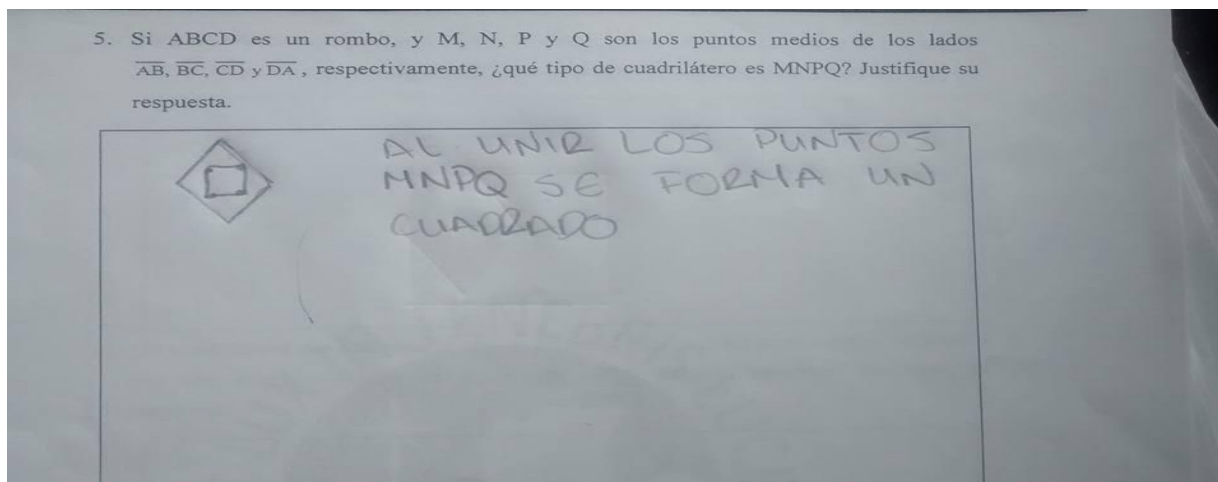 5. Si ABCD es un rombo, y M, N, P y Q son los puntos medios de los lados
AB, BC, CD y DA , respectivamente, ¿qué tipo de cuadrilátero es MNPQ? Justifique su
respuesta.
AL UNIR LOS PUNTOS
MNPQ SE FORMA UN
CUADRADO